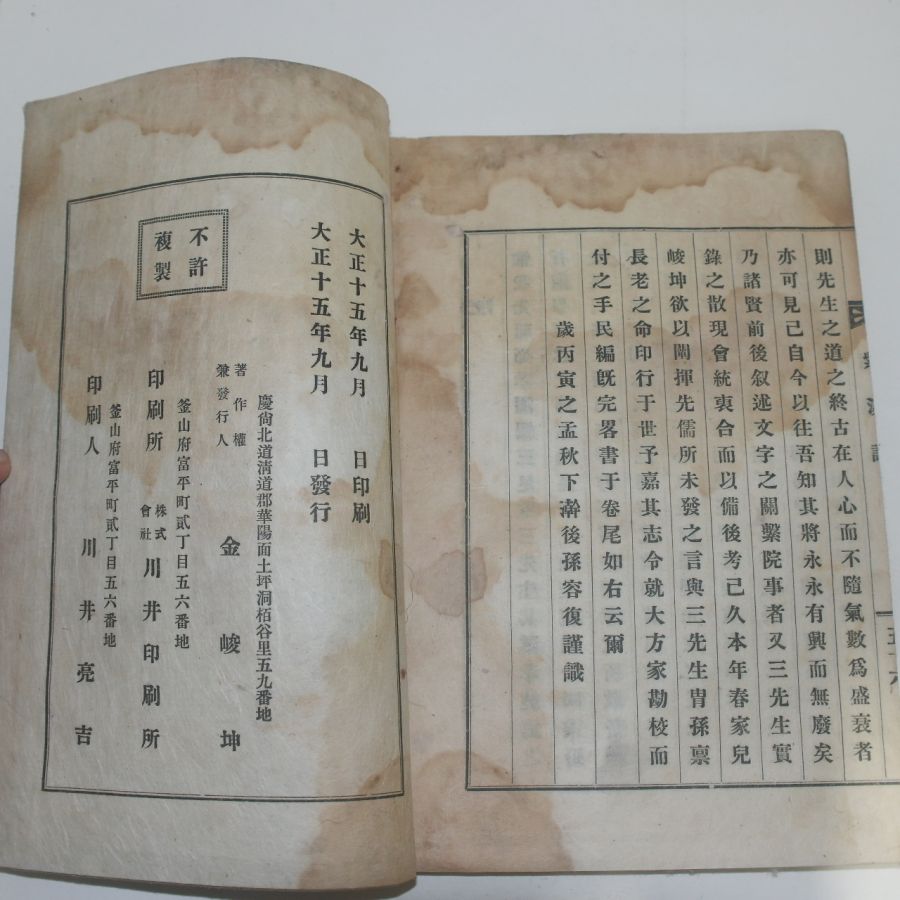 則先生之道之終古在人心而不隨氣數爲盛衰者
亦可見已自今以往吾知其將永永有興而無廢矣
乃諸賢前後叙述文字之關繫院事者又三先生實
錄之散現會統衷合而以備後考己久本年春家兒
峻坤欲以闡揮先儒所未發之言與三先生胄孫禀
長老之命印行于世予嘉其志令就大方家勘校而
付之手民編旣完畧書于卷尾如右云爾
歲丙寅之孟秋下澣後孫容復謹識
大正十五年九月 日印刷
大正十五年九月 日發行
不許
複製
慶尙北道淸道郡華陽面土坪洞栢谷里五九番地
著作權
兼發行人 金峻坤
釜山府富平町貳丁目五六番地
印刷所 株式會社 川井印刷所
釜山府富平町貳丁目五六番地
印刷人 川井亮吉